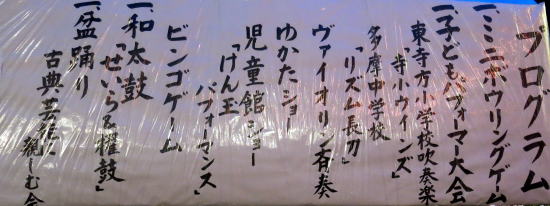 プログラム
一、ミニボウリングゲーム
一、子どもパフォーマー大会
東寺方小学校吹奏楽
「寺小ウィーンズ」
多摩中学校
「リズム長刀」
ヴァイオリン合奏
ゆかたショー
児童館ショー
「けん玉
パフォーマンス」
ビンゴゲーム
一、和太鼓
「せいら&櫂鼓」
一、盆踊り
古典芸能に親しむ会